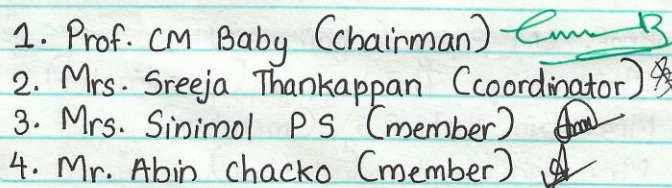 1. Prof. CM Baby (chairman)
2. Mrs. Sreeja Thankappan (coordinator)
3. Mrs. Sinimol PS (member)
4. Mr. Abin chacko (member)